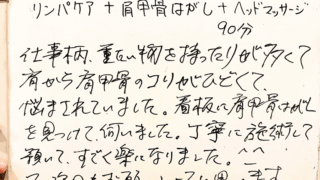 リンパケア + 肩甲骨はがし + ヘッドマッサージ
90分
仕事柄、重たい物を持ったりが多くて
肩から肩甲骨のコリがひどくて、
悩まされていました。看板に肩甲骨はがし
を見つけて、伺いました。丁寧に施術して
頂いて、すごく楽になりました。^^